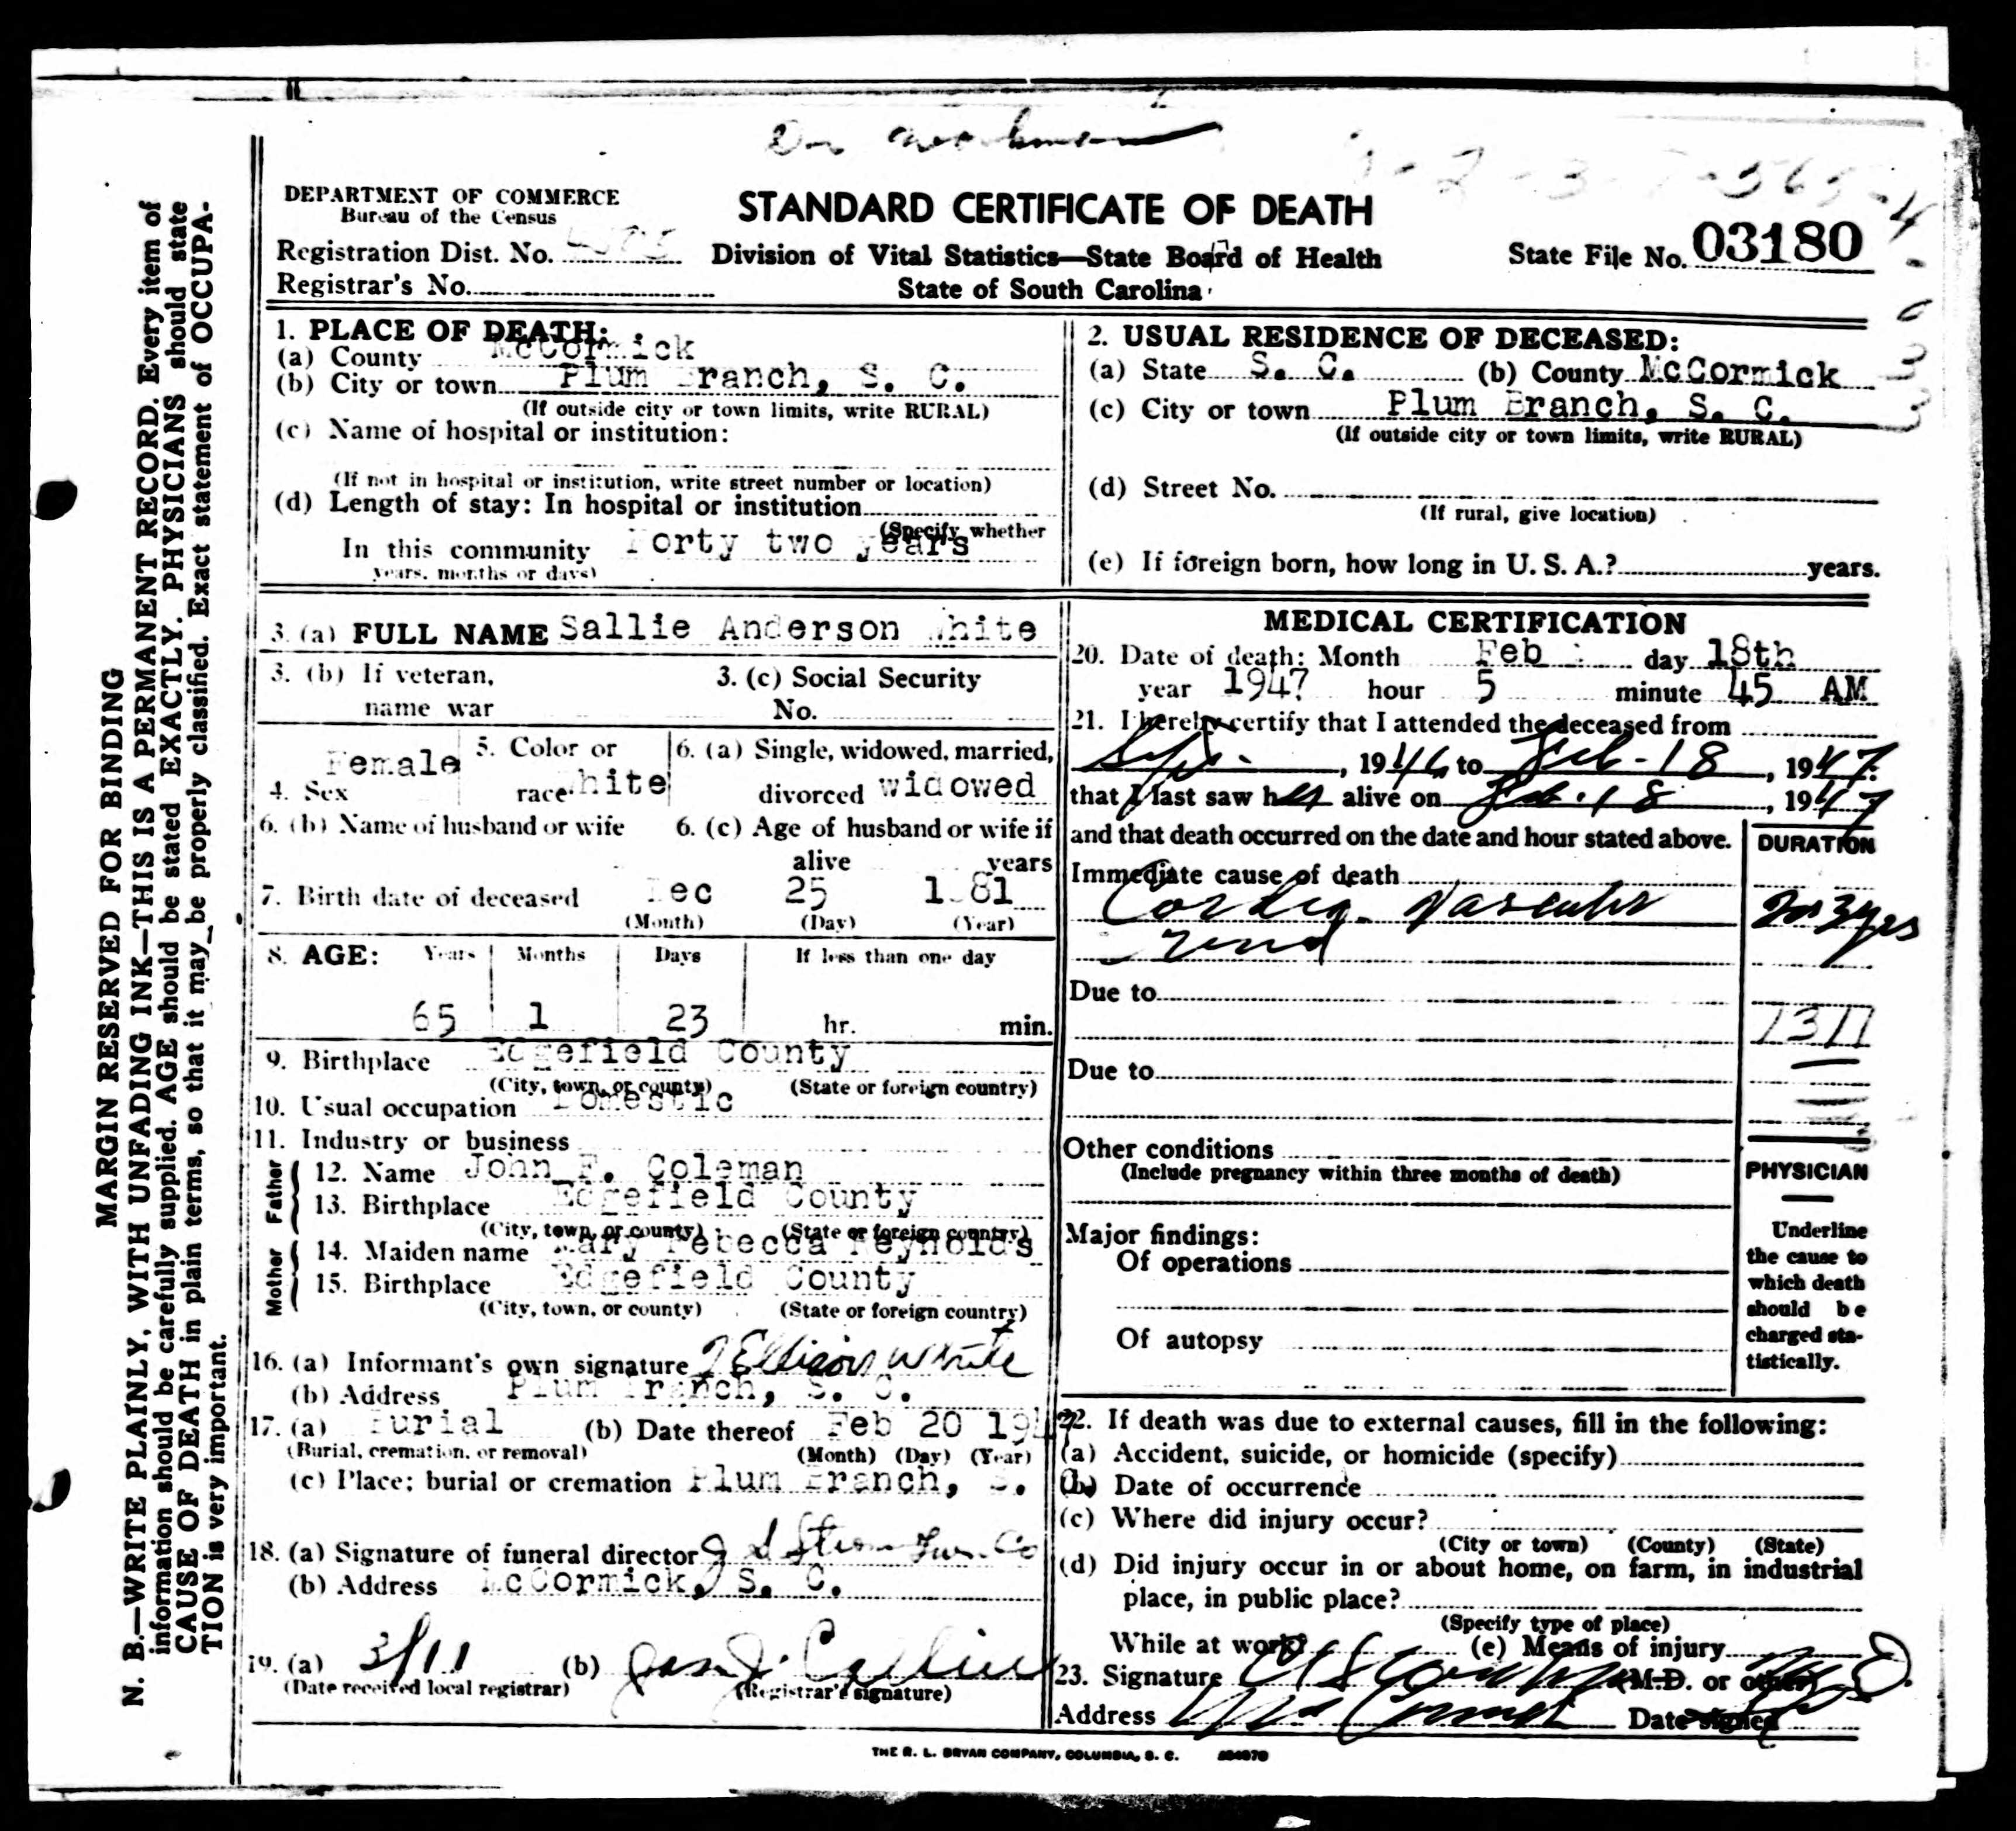 DEPARTMENT OF COMMERCE
Bureau of the Census
STANDARD CERTIFICATE OF DEATH
Registration Dist. No.
Division of Vital Statistics—State Board of Health
State File No. 03180
Registrar's No.
State of South Carolina
1. PLACE OF DEATH:
(a) County McCormick
(b) City or town Plum Branch, S. C.
(If outside city or town limits, write RURAL)
(c) Name of hospital or institution:
(If not in hospital or institution, write street number or location)
(d) Length of stay: In hospital or institution
(Specify whether
In this community Forty two years
years, months or days)
2. USUAL RESIDENCE OF DECEASED:
(a) State S. C. (b) County McCormick
(c) City or town Plum Branch, S. C.
(If outside city or town limits, write RURAL)
(d) Street No.
(If rural, give location)
(e) If foreign born, how long in U. S. A.? years.
3. (a) FULL NAME Sallie Anderson White
3. (b) If veteran, 3. (c) Social Security
name war No.
4. Sex Female 5. Color or race White 6. (a) Single, widowed, married, divorced widowed
6. (b) Name of husband or wife 6. (c) Age of husband or wife if
alive years
7. Birth date of deceased Dec 25 1881
(Month) (Day) (Year)
8. AGE: Years Months Days If less than one day
65 1 23 hr. min.
9. Birthplace Edgefield County
(City, town, or county) (State or foreign country)
10. Usual occupation Domestic
11. Industry or business
Father
12. Name John F. Coleman
13. Birthplace Edgefield County
(City, town, or county) (State or foreign country)
Mother
14. Maiden name Mary Rebecca Reynolds
15. Birthplace Edgefield County
(City, town, or county) (State or foreign country)
16. (a) Informant's own signature J Ellison White
(b) Address Plum Branch, S. C.
17. (a) Burial (b) Date thereof Feb 20 1947
(Burial, cremation, or removal) (Month) (Day) (Year)
(c) Place; burial or cremation Plum Branch, S.
18. (a) Signature of funeral director J S Strom Fur. Co
(b) Address McCormick, S. C.
19. (a) 3/11 (b) Jas. J.
(Date received local registrar) (Registrar's signature)
MEDICAL CERTIFICATION
20. Date of death: Month Feb day 18th
year 1947 hour 5 minute 45 AM
21. I hereby certify that I attended the deceased from
Sept. , 1946 to Feb-18 , 1947
that I last saw her alive on Feb. 18 , 1947
and that death occurred on the date and hour stated above.
DURATION
Immediate cause of death
Cardio Vascular 2 or 3 yrs
renal
Due to
1311
Due to
Other conditions
(Include pregnancy within three months of death)
PHYSICIAN
Major findings:
Of operations
Of autopsy
Underline
the cause to
which death
should be
charged sta-
tistically.
22. If death was due to external causes, fill in the following:
(a) Accident, suicide, or homicide (specify)
(b) Date of occurrence
(c) Where did injury occur?
(City or town) (County) (State)
(d) Did injury occur in or about home, on farm, in industrial
place, in public place?
(Specify type of place)
While at work? (e) Means of injury
23. Signature (M.D. or other)
Address McCormick Date signed
THE R. L. BRYAN COMPANY, COLUMBIA, S. C.
MARGIN RESERVED FOR BINDING
N. B.—WRITE PLAINLY, WITH UNFADING INK—THIS IS A PERMANENT RECORD. Every item of
information should be carefully supplied. AGE should be stated EXACTLY. PHYSICIANS should state
CAUSE OF DEATH in plain terms, so that it may be properly classified. Exact statement of OCCUPA-
TION is very important.